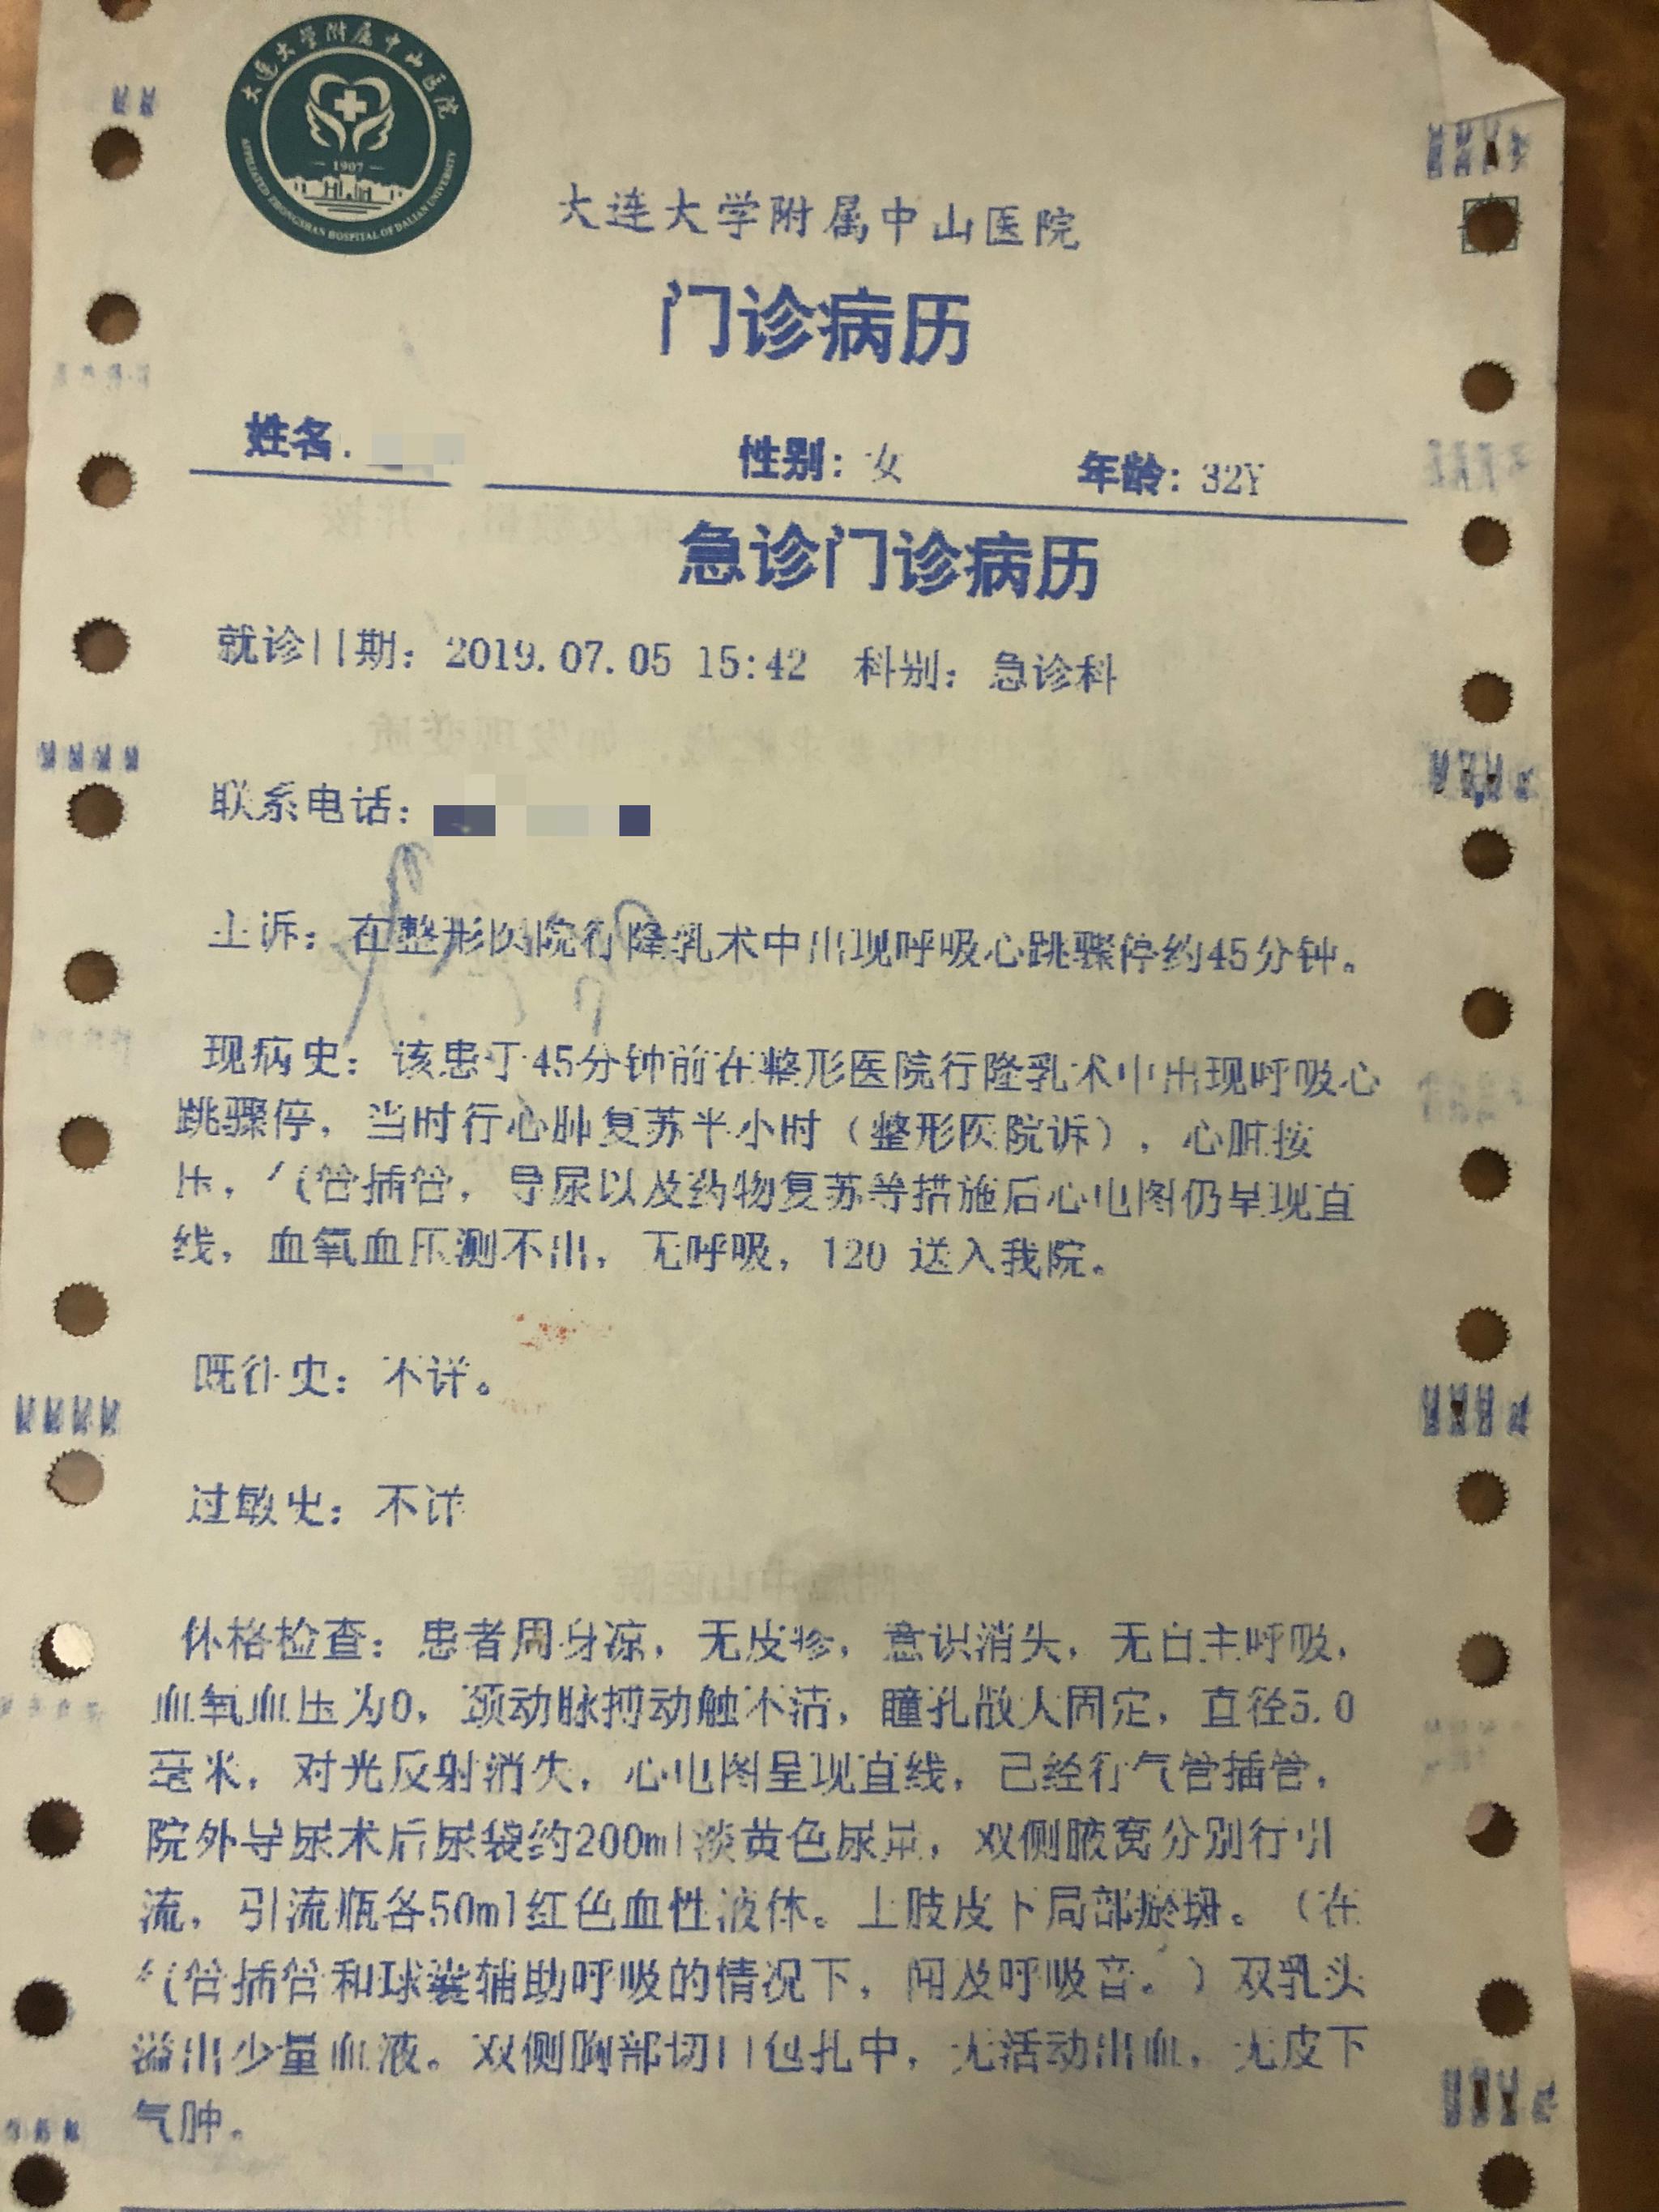 大连大学附属中山医院
1907
AFFILIATED ZHONGSHAN HOSPITAL OF DALIAN UNIVERSITY
大连大学附属中山医院
门诊病历
姓名: 性别：女 年龄：32Y
急诊门诊病历
就诊日期：2019.07.05 15:42 科别：急诊科
联系电话：
主诉：在整形医院行隆乳术中出现呼吸心跳骤停约45分钟。
现病史：该患于45分钟前在整形医院行隆乳术中出现呼吸心
跳骤停，当时行心肺复苏半小时（整形医院诉），心脏按
压，气管插管，导尿以及药物复苏等措施后心电图仍呈现直
线，血氧血压测不出，无呼吸，120 送入我院。
既往史：不详。
过敏史：不详
体格检查：患者周身凉，无皮疹，意识消失，无自主呼吸，
血氧血压为0，颈动脉搏动触不清，瞳孔散大固定，直径5.0
毫米，对光反射消失，心电图呈现直线，已经行气管插管，
院外导尿术后尿袋约200ml淡黄色尿量，双侧腋窝分别行引
流，引流瓶各50ml红色血性液体。上肢皮下局部瘀斑。（在
气管插管和球囊辅助呼吸的情况下，闻及呼吸音。）双乳头
溢出少量血液。双侧胸部切口包扎中，无活动出血，无皮下
气肿。